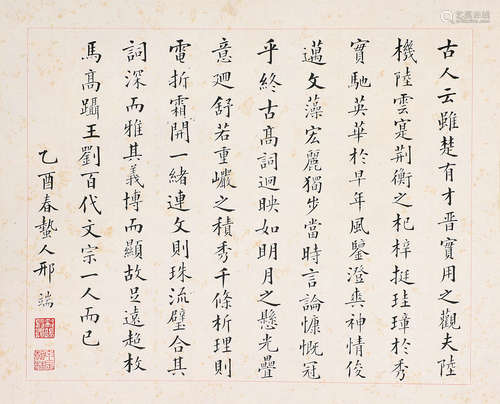 古人云雖楚有才晉實用之觀夫陸
機陸雲寔荆衡之杞梓挺珪璋於秀
實馳英華於早年風鑒澄爽神情俊
邁文藻宏麗獨步當時言論慷慨冠
乎終古高詞迥映如明月之懸光疊
意迴舒若重巖之積秀千條析理則
電折霜開一緒連文則珠流璧合其
詞深而雅其義博而顯故足遠超枚
馬高躡王劉百代文宗一人而已
乙酉春蟄人邢端